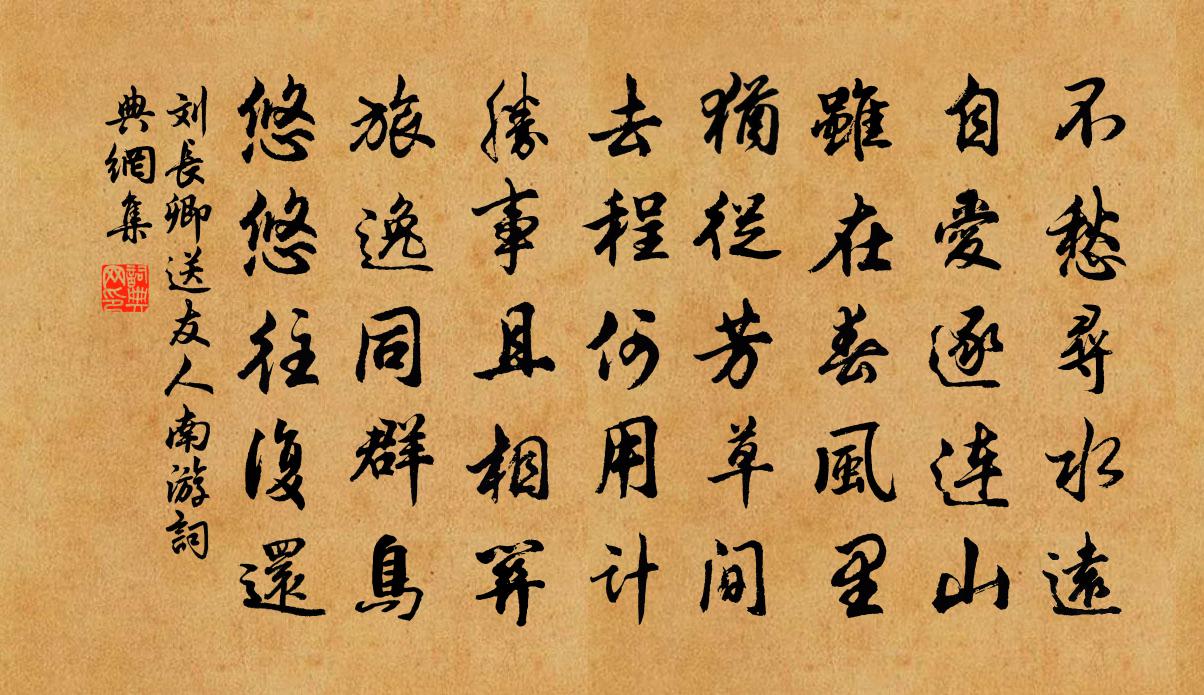 不愁尋水遠
自愛逐連山
雖在春風里
猶從芳草間
去程何用計
勝事且相關
旅逸同群鳥
悠悠往復還
刘長卿送友人南游詞
典網集
詞典
网印